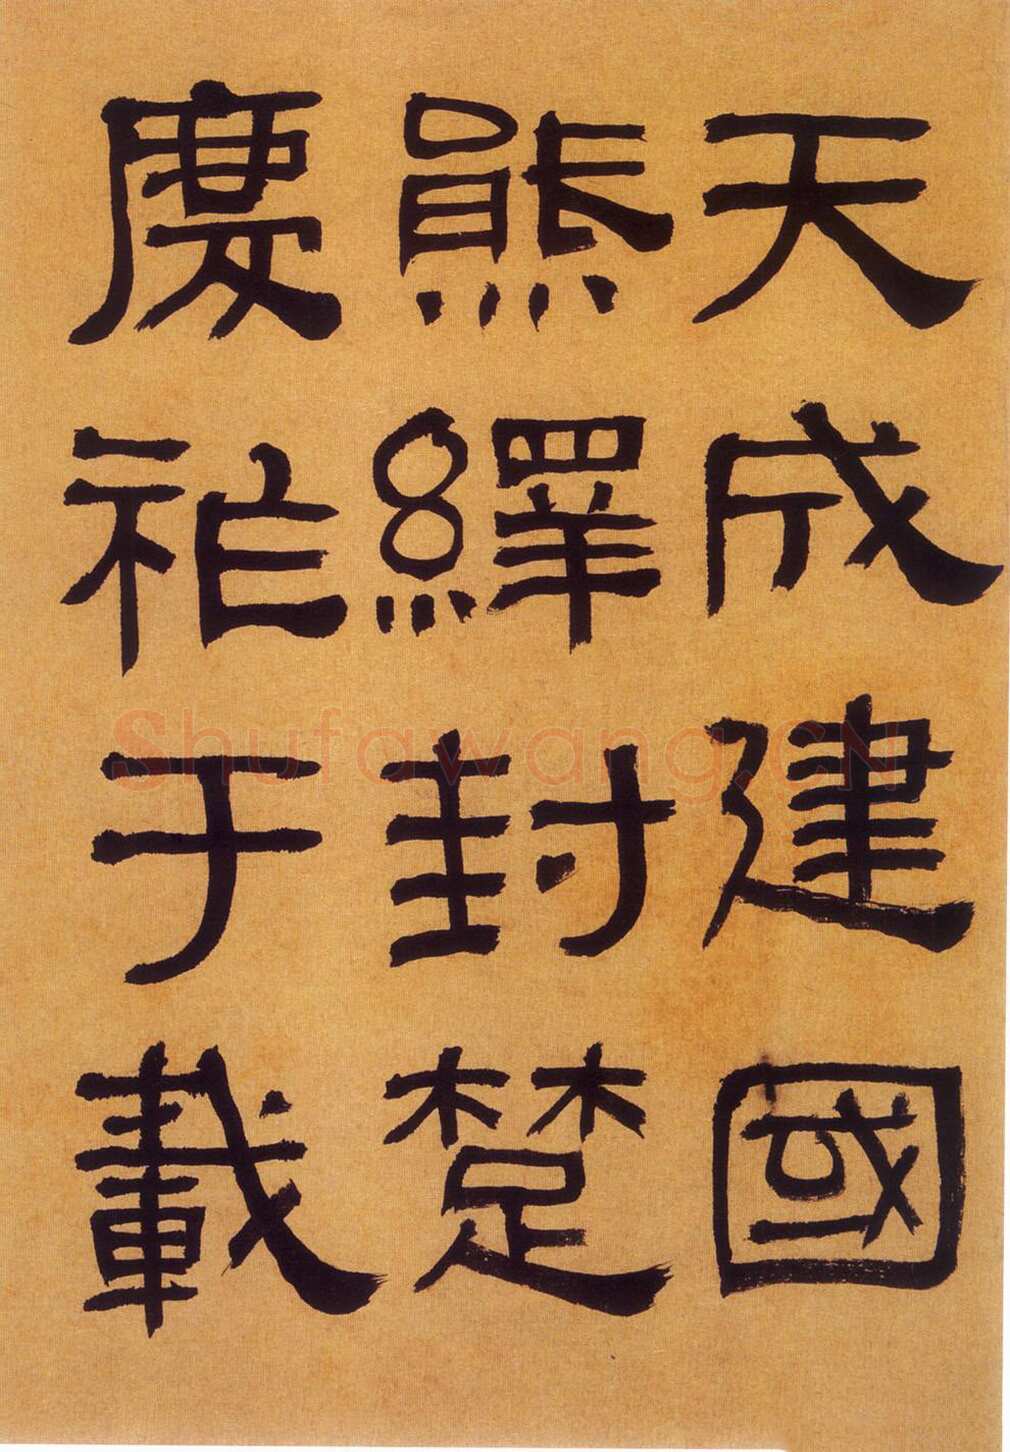 天成建國
熊繹封楚
慶祚于載
Shufawang.CN